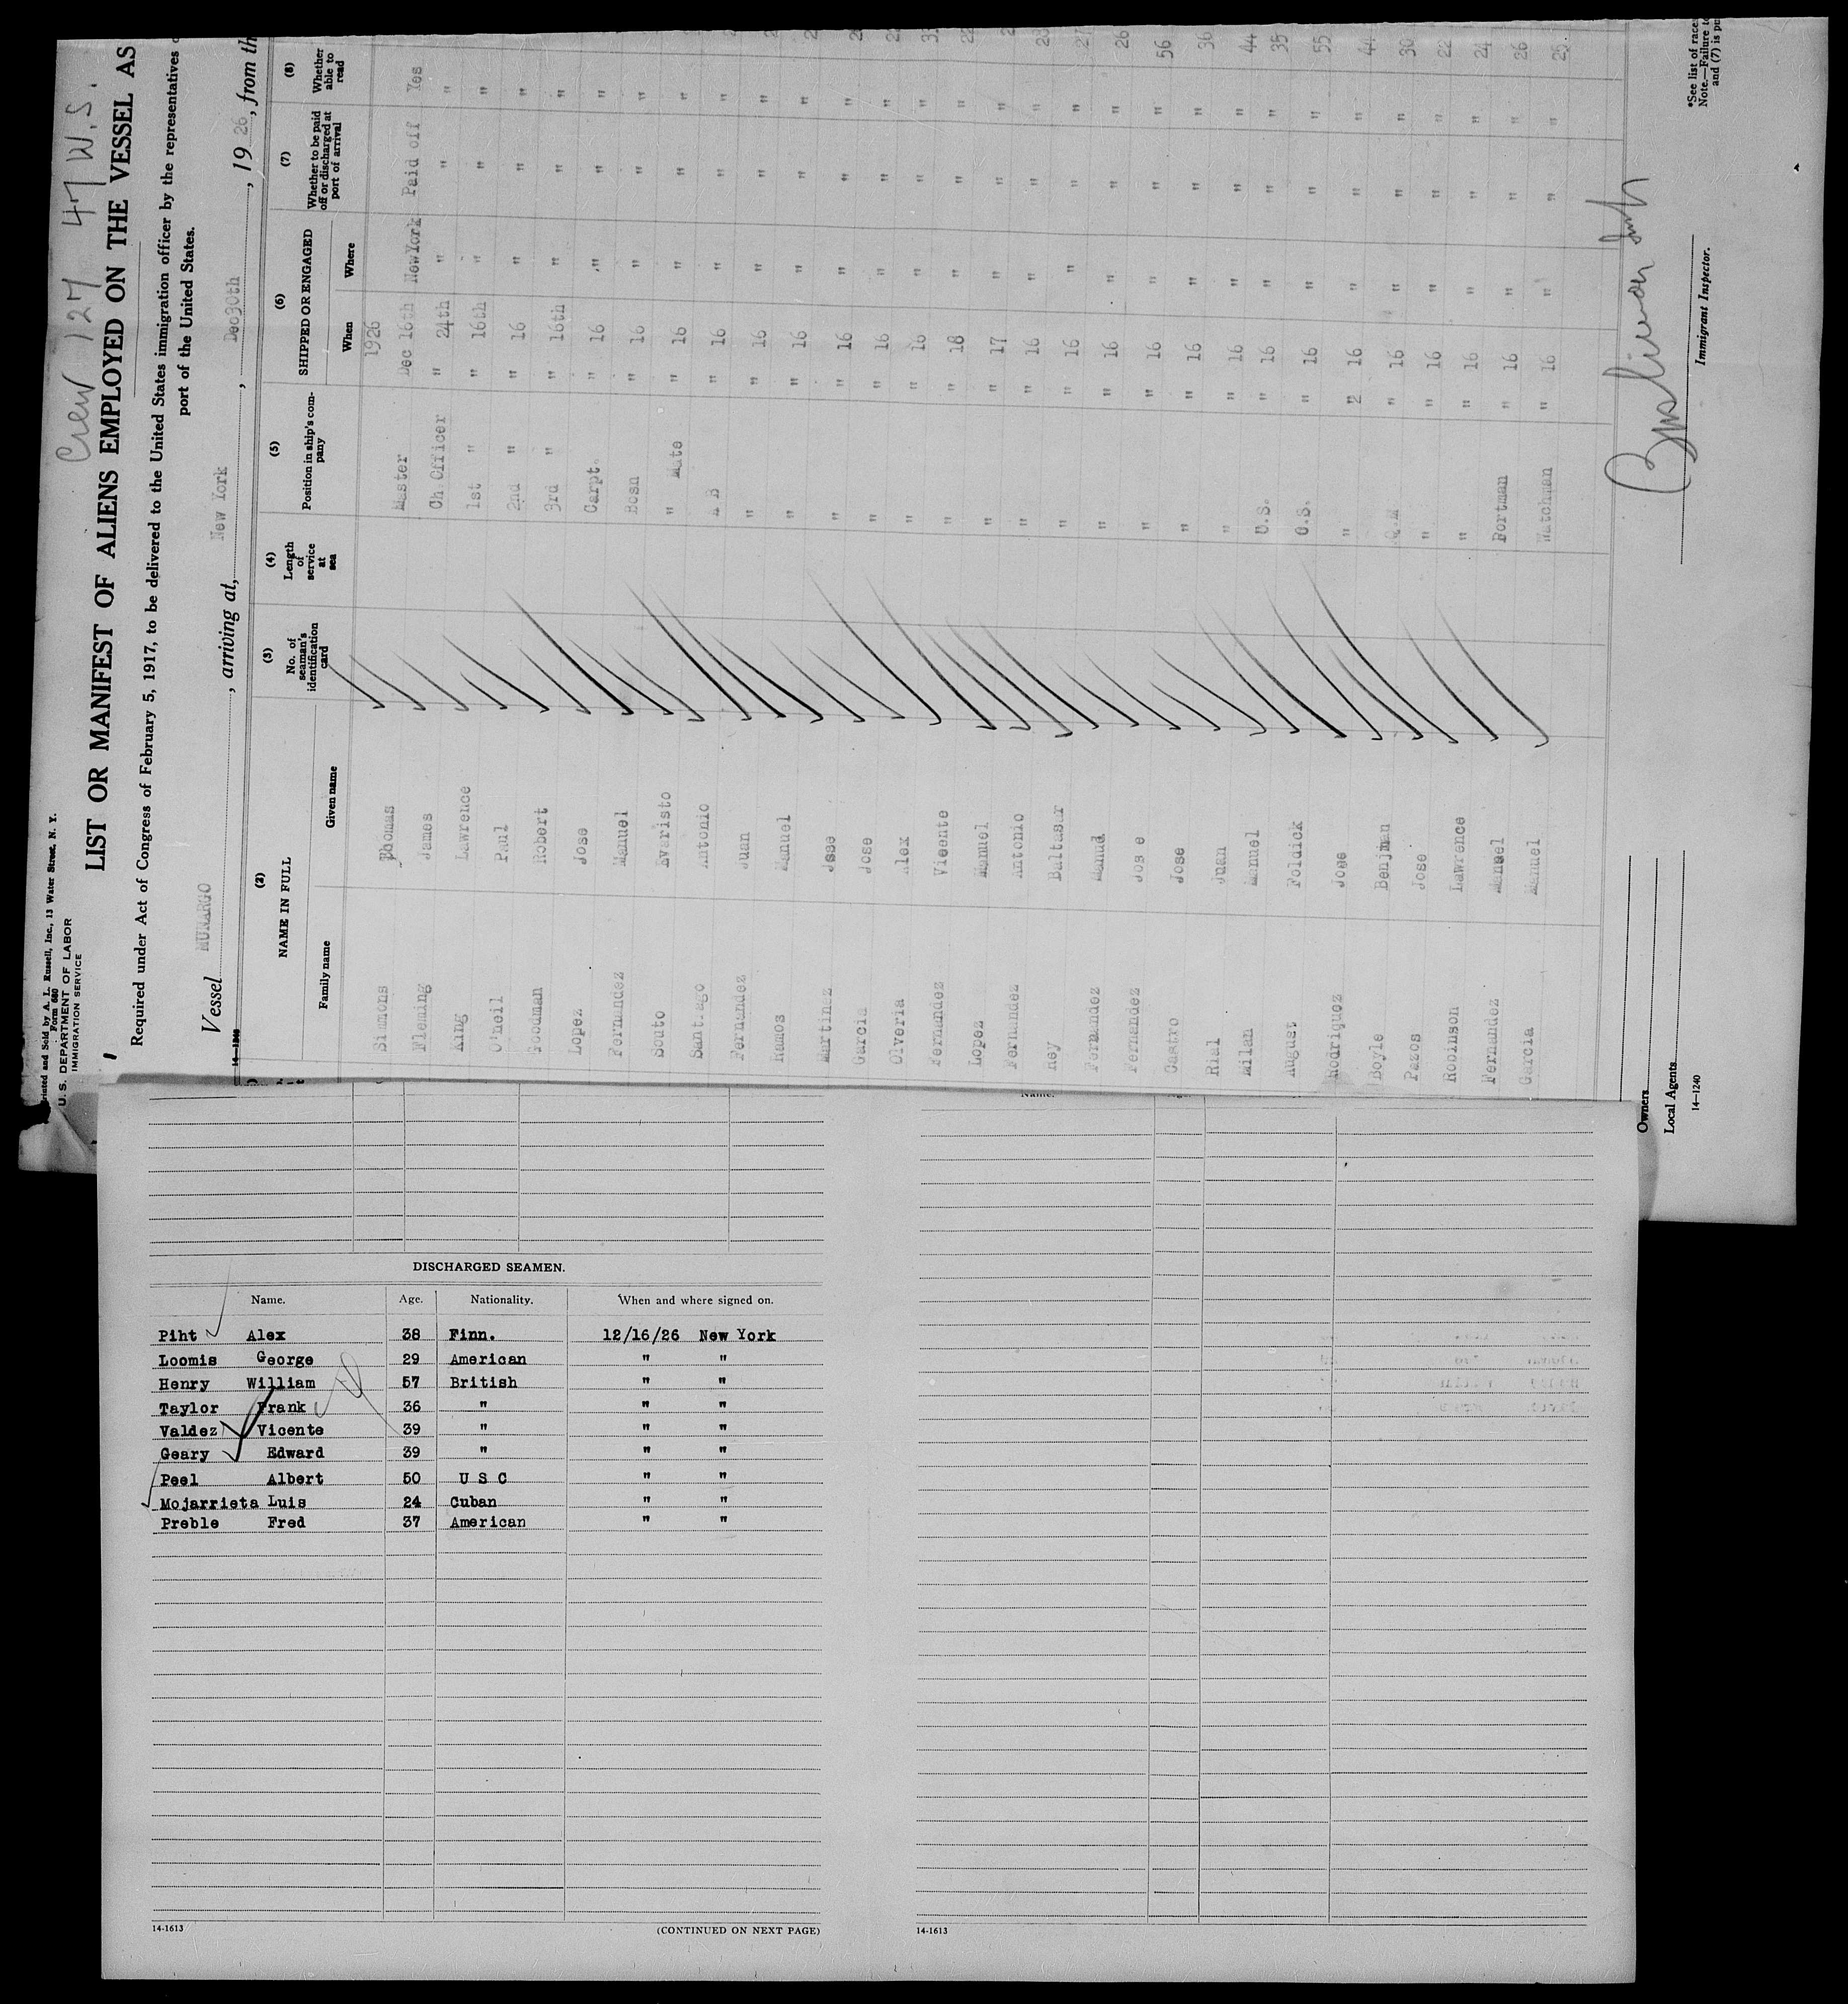 Crew 127 47 W.S.
Printed and Sold by A. L. Russell, Inc., 13 Water Street, N. Y.
Form 680
U. S. DEPARTMENT OF LABOR
IMMIGRATION SERVICE
LIST OR MANIFEST OF ALIENS EMPLOYED ON THE VESSEL AS
Required under Act of Congress of February 5, 1917, to be delivered to the United States immigration officer by the representatives
port of the United States.
Vessel MUNARGO, arriving at, New York, Dec 30th, 19 26, from th
14-1240
(2) (3) (4) (5) (6) (7) (8)
NAME IN FULL No. of seaman's identification card Length of service at sea Position in ship's company SHIPPED OR ENGAGED Whether to be paid off or discharged at port of arrival Whether able to read
Family name Given name When Where
1926
Simmons Thomas Master Dec 16th NewYork Paid off Yes
Fleming James Ch.Officer " 24th " " "
King Lawrence 1st " " 16th " " "
O'neil Paul 2nd " " 16 " " "
Goodman Robert 3rd " " 16th " " "
Lopez Jose Carpt. " 16 " " "
Fernandez Manuel Bosn " 16 " " "
Souto Evaristo " Mate " 16 " " "
Santiago Antonio A B " 16 " " "
Fernandez Juan " " 16 " " "
Ramos Manuel " " 16 " " "
Martinez Jose " " 16 " " "
Garcia Jose " " 16 " " "
Olveria Alex " " 16 " " "
Fernandez Vicente " " 18 " " "
Lopez Manuel " " 17 " " "
Fernandez Antonio " " 16 " " "
Rey Baltasar " " 16 " " "
Fernandez Manuel " " 16 " " " 26
Fernandez Jose " " 16 " " " 56
Castro Jose " " 16 " " " 36
Rial Juan " " 16 " " " 44
Milan Manuel U.S. " 16 " " " 35
August Foldick O.S. " 16 " " " 55
Rodriquez Jose " " 16 " " " 44
Boyle Benjman Q.M " 16 " " " 30
Pazos Jose " " 16 " " " 22
Robinson Lawrence " " 16 " " " 24
Fernandez Manuel Portman " 16 " " " 26
Garcia Manuel Watchman " 16 " " " 25
Immigrant Inspector.
Owners
Local Agents
14—1240
*See list of race
Note.—Failure t
and (7) is p
DISCHARGED SEAMEN.
Name. Age. Nationality. When and where signed on.
Piht Alex 38 Finn. 12/16/26 New York
Loomis George 29 American " "
Henry William 57 British " "
Taylor Frank 36 " " "
Valdez Vicente 39 " " "
Geary Edward 39 " " "
Peel Albert 50 U S C " "
Mojarrieta Luis 24 Cuban " "
Preble Fred 37 American " "
14-1613 (CONTINUED ON NEXT PAGE)
Name.
14-1613